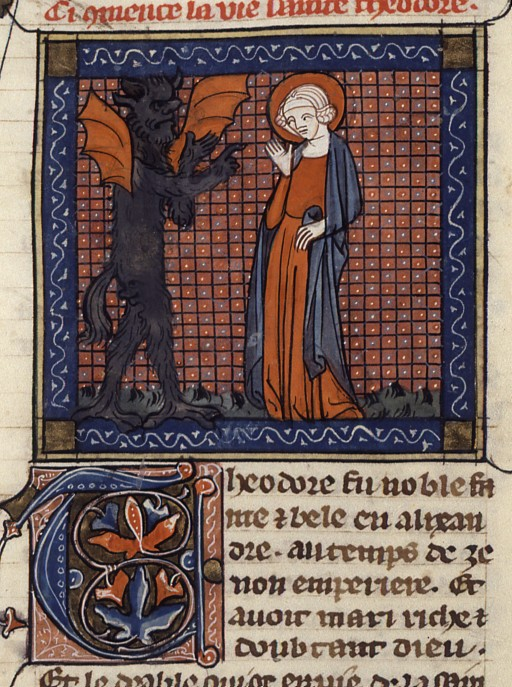 Ci ꝯmence la vie sainte theodore.
Theodore fu noble fa
me ⁊ bele en alixan
dre. au temps de ze
non emperiere. Et
auoit mari riche ⁊
doubtant dieu.
Et le dyable qui ot enuie de la